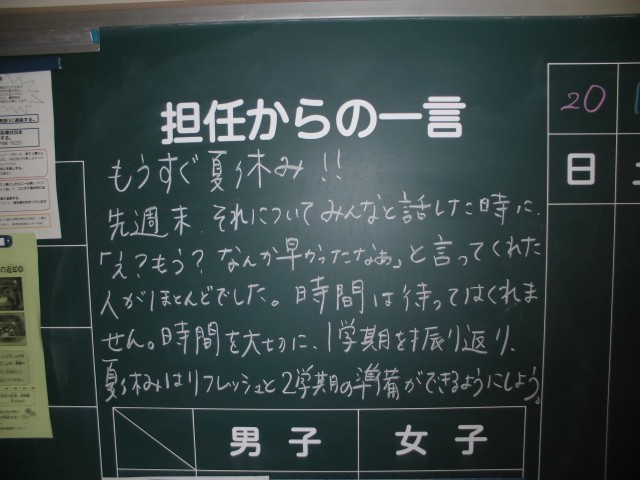 担任からの一言
もうすぐ夏休み!!
先週末、それについてみんなと話した時に、
「え?もう?なんか早かったなぁ」と言ってくれた
人がほとんどでした。時間は待ってはくれま
せん。時間を大切に、1学期を振り返り、
夏休みはリフレッシュと2学期の準備ができるようにしよう。
男子 女子
20
日